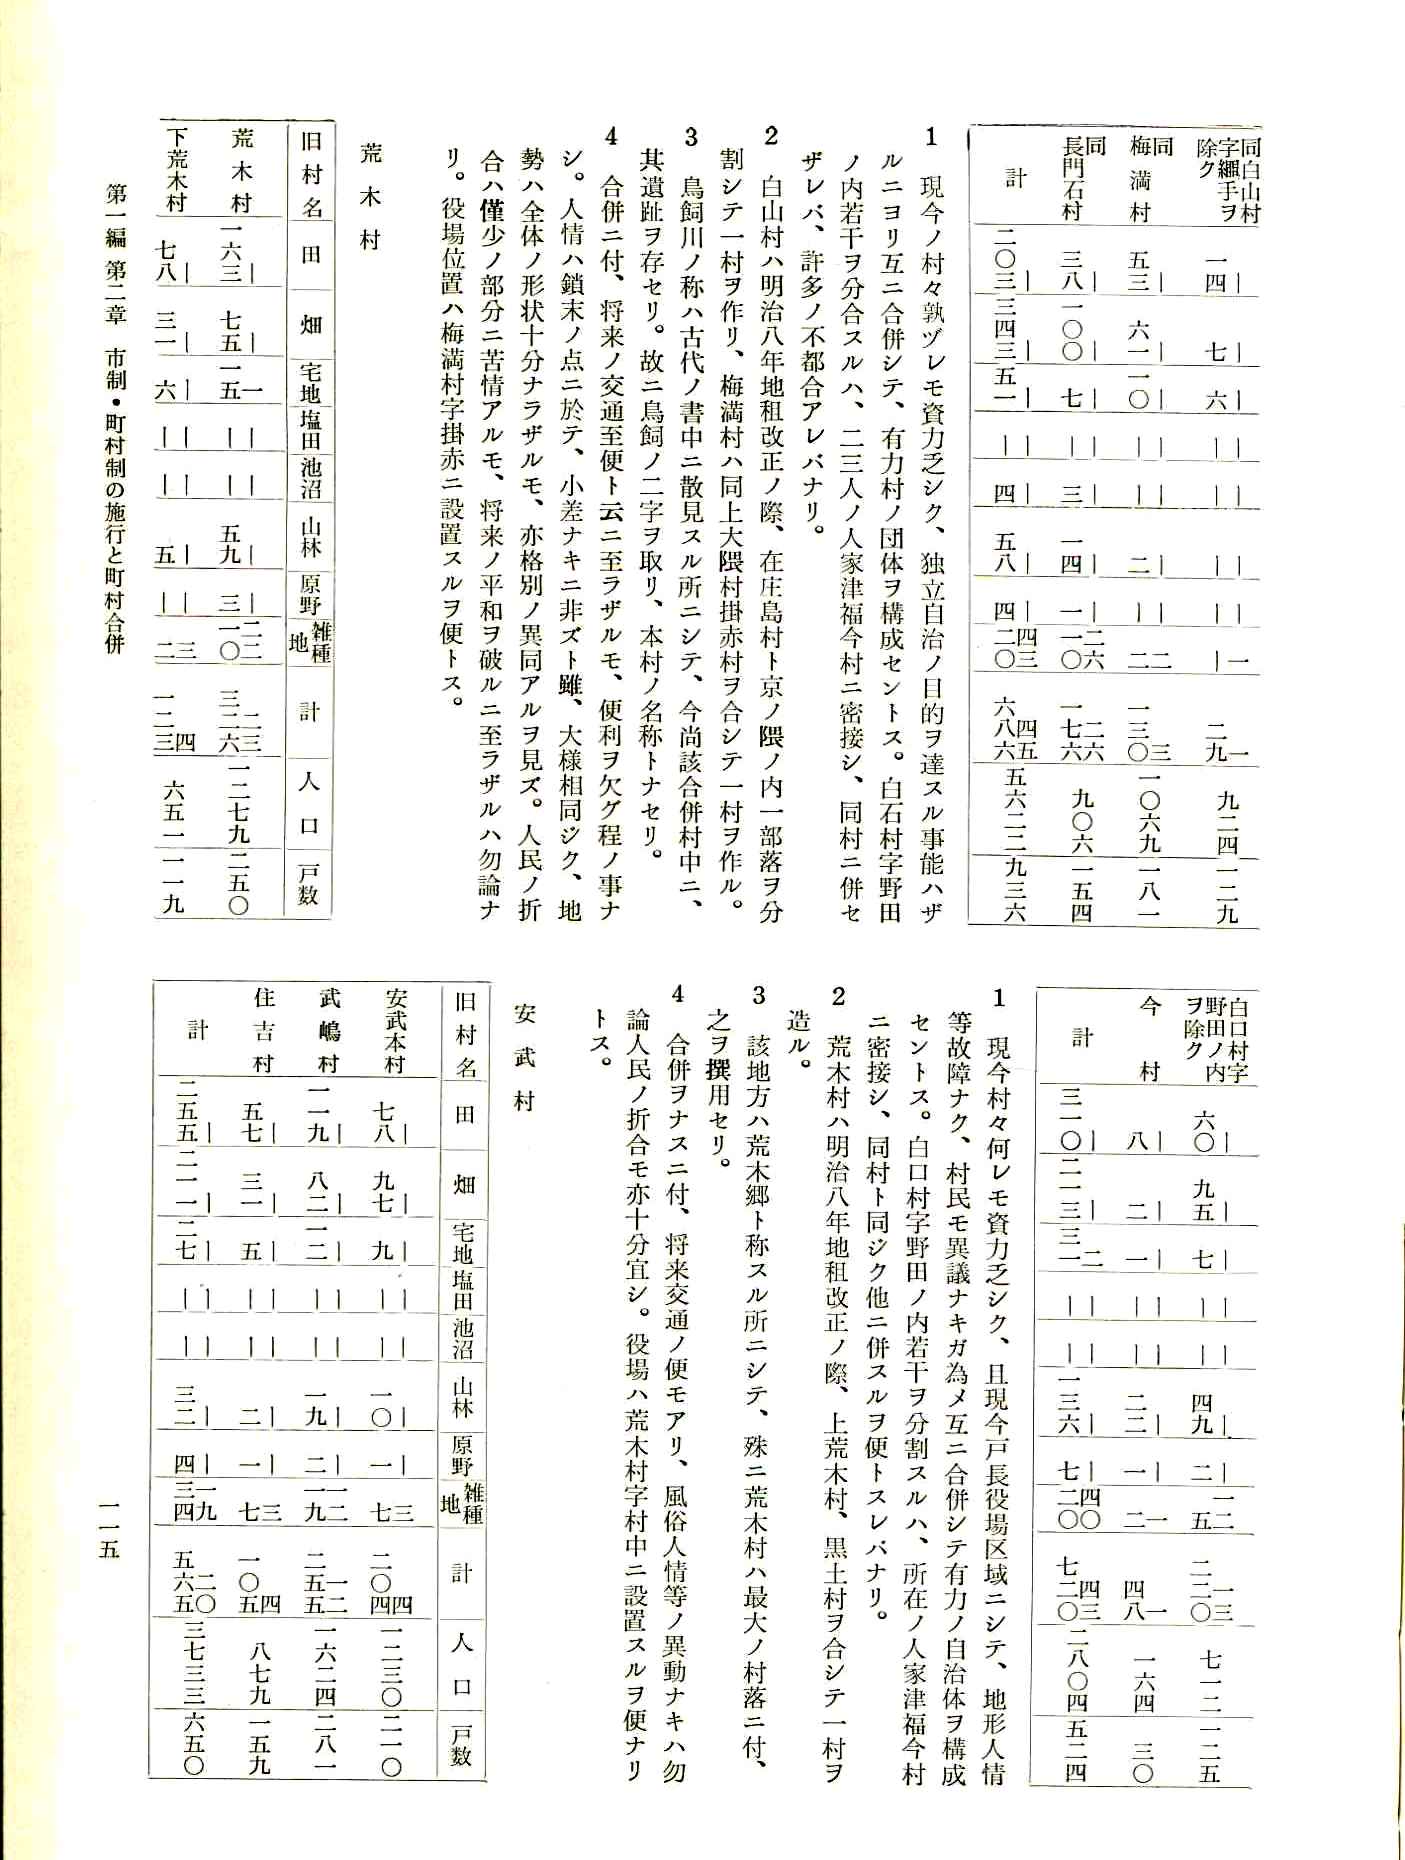 同白山村字繩手ヲ除ク 一四｜ 七｜ 六｜ ｜｜ ｜｜ ｜｜ ｜｜ ｜一 二九一 九二四 一二九
同梅満村 五三｜ 六一｜ 一〇｜ ｜｜ ｜｜ 二｜ ｜｜ 二二 一三〇三 一〇六九 一八一
同長門石村 三八｜ 一〇〇｜ 七｜ ｜｜ 三｜ 一四｜ 一｜ 一〇二六 一七六二六 九〇六 一五四
計 二〇三｜ 三四三｜ 五一｜ ｜｜ 四｜ 五八｜ 四｜ 二〇四三 六八六四五 五六二二 九三六
1 現今ノ村々孰ヅレモ資力乏シク、独立自治ノ目的ヲ達スル事能ハザ
ルニヨリ互ニ合併シテ、有力村ノ団体ヲ構成セントス。白石村字野田
ノ内若干ヲ分合スルハ、二三人ノ人家津福今村ニ密接シ、同村ニ併セ
ザレバ、許多ノ不都合アレバナリ。
2 白山村ハ明治八年地租改正ノ際、在庄島村ト京ノ隈ノ内一部落ヲ分
割シテ一村ヲ作リ、梅満村ハ同上大隈村掛赤村ヲ合シテ一村ヲ作ル。
3 鳥飼川ノ称ハ古代ノ書中ニ散見スル所ニシテ、今尚該合併村中ニ、
其遺趾ヲ存セリ。故ニ鳥飼ノ二字ヲ取リ、本村ノ名称トナセリ。
4 合併ニ付、将来ノ交通至便ト云ニ至ラザルモ、便利ヲ欠グ程ノ事ナ
シ。人情ハ鎖末ノ点ニ於テ、小差ナキニ非ズト雖、大様相同ジク、地
勢ハ全体ノ形状十分ナラザルモ、亦格別ノ異同アルヲ見ズ。人民ノ折
合ハ僅少ノ部分ニ苦情アルモ、将来ノ平和ヲ破ルニ至ラザルハ勿論ナ
リ。役場位置ハ梅満村字掛赤ニ設置スルヲ便トス。
荒木村
旧村名 田 畑 宅地 塩田 池沼 山林 原野 雑種地 計 人口 戸数
荒木村 一六三｜ 七五｜ 一五一 ｜｜ ｜｜ 五九｜ 三｜ 一〇二二 三二六二三 一二七九 二五〇
下荒木村 七八｜ 三一｜ 六｜ ｜｜ ｜｜ 五｜ ｜｜ 二三 一二三四 六五一 一一九
白口村字野田ノ内ヲ除ク 六〇｜ 九五｜ 七｜ ｜｜ ｜｜ 四九｜ 二｜ 五一二 二二〇一三 七一二 一二五
今村 八｜ 二｜ 一｜ ｜｜ ｜｜ 二二｜ 一｜ 二一 四八一 一六四 三〇
計 三一〇｜ 二一三｜ 三一二 ｜｜ ｜｜ 一三六｜ 七｜ 二〇四〇 七二〇四三 二八〇四 五二四
1 現今村々何レモ資力乏シク、且現今戸長役場区域ニシテ、地形人情
等故障ナク、村民モ異議ナキガ為メ互ニ合併シテ有力ノ自治体ヲ構成
セントス。白口村字野田ノ内若干ヲ分割スルハ、所在ノ人家津福今村
ニ密接シ、同村ト同ジク他ニ併スルヲ便トスレバナリ。
2 荒木村ハ明治八年地租改正ノ際、上荒木村、黒土村ヲ合シテ一村ヲ
造ル。
3 該地方ハ荒木郷ト称スル所ニシテ、殊ニ荒木村ハ最大ノ村落ニ付、
之ヲ撰用セリ。
4 合併ヲナスニ付、将来交通ノ便モアリ、風俗人情等ノ異動ナキハ勿
論人民ノ折合モ亦十分宜シ。役場ハ荒木村字村中ニ設置スルヲ便ナリ
トス。
安武村
旧村名 田 畑 宅地 塩田 池沼 山林 原野 雑種地 計 人口 戸数
安武本村 七八｜ 九七｜ 九｜ ｜｜ ｜｜ 一〇｜ 一｜ 七三 二〇四四 一二三〇 二一〇
武嶋村 一一九｜ 八二｜ 一二｜ ｜｜ ｜｜ 一九｜ 二｜ 一九一二 二五五一二 一六二四 二八一
住吉村 五七｜ 三一｜ 五｜ ｜｜ ｜｜ 二｜ 一｜ 七三 一〇五四 八七九 一五九
計 二五五｜ 二一一｜ 二七｜ ｜｜ ｜｜ 三二｜ 四｜ 三四一九 五六五二〇 三七三三 六五〇
第一編 第二章 市制・町村制の施行と町村合併
一一五